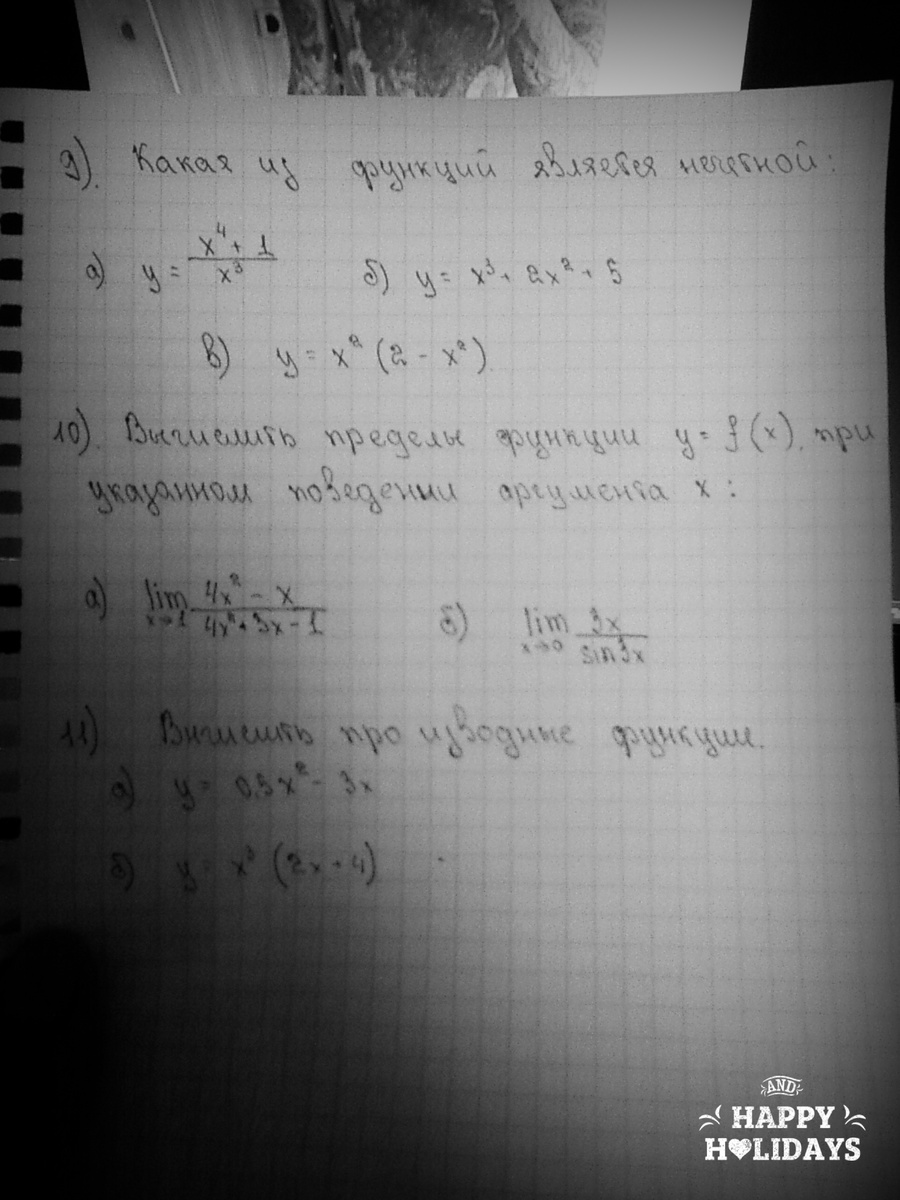 9). Какая из функций является нечетной:
а) y = (x⁴ + 1)/x³ б) y = x³ + 2x² + 5
в) y = x² (2 - x²).
10). Вычислить пределы функции y = f(x), при
указанном поведении аргумента x :
а) lim x→1 (4x² - x)/(4x² + 3x - 1) б) lim x→0 3x/sin3x
11) Вычислить производные функции.
а) y = 0,5x² - 3x
б) y = x³ (2x + 4)
AND
HAPPY
HOLIDAYS